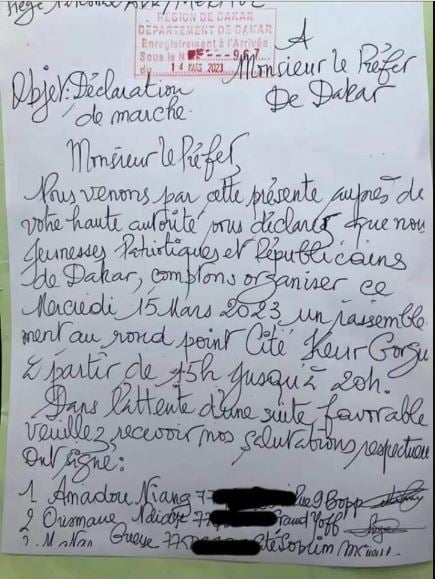 Siège
REGION DE DAKAR
DEPARTEMENT DE DAKAR
Enregistrement à l'Arrivée
Sous le N° 967
du 14 MARS 2023
A
Monsieur le Préfet
De Dakar
Objet: Déclaration
de marche
Monsieur le Préfet,
Nous venons par cette présente auprès de
votre haute autorité vous déclarer que nou
Jeunesses Patriotiques et Républicains
de Dakar, comptons organiser ce
Mercredi 15 Mars 2023 un rassemble
ment au rond point Cité Keur Gorgu
à partir de 15h jusqu'à 20h.
Dans l'attente d'une suite favorable
veuillez recevoir nos salutations respectueu
Ont signé:
1 Amadou Niang 77 Bopp
2 Ousmane Ndiaye 77 Yoff
3 Gueye 775 Cité Soprim